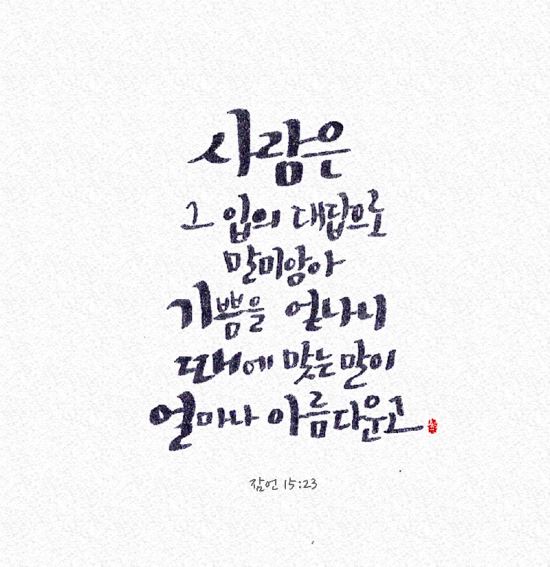 사람은
그 입의 대답으로
말미암아
기쁨을 얻나니
때에 맞는 말이
얼마나 아름다운고
잠언 15:23